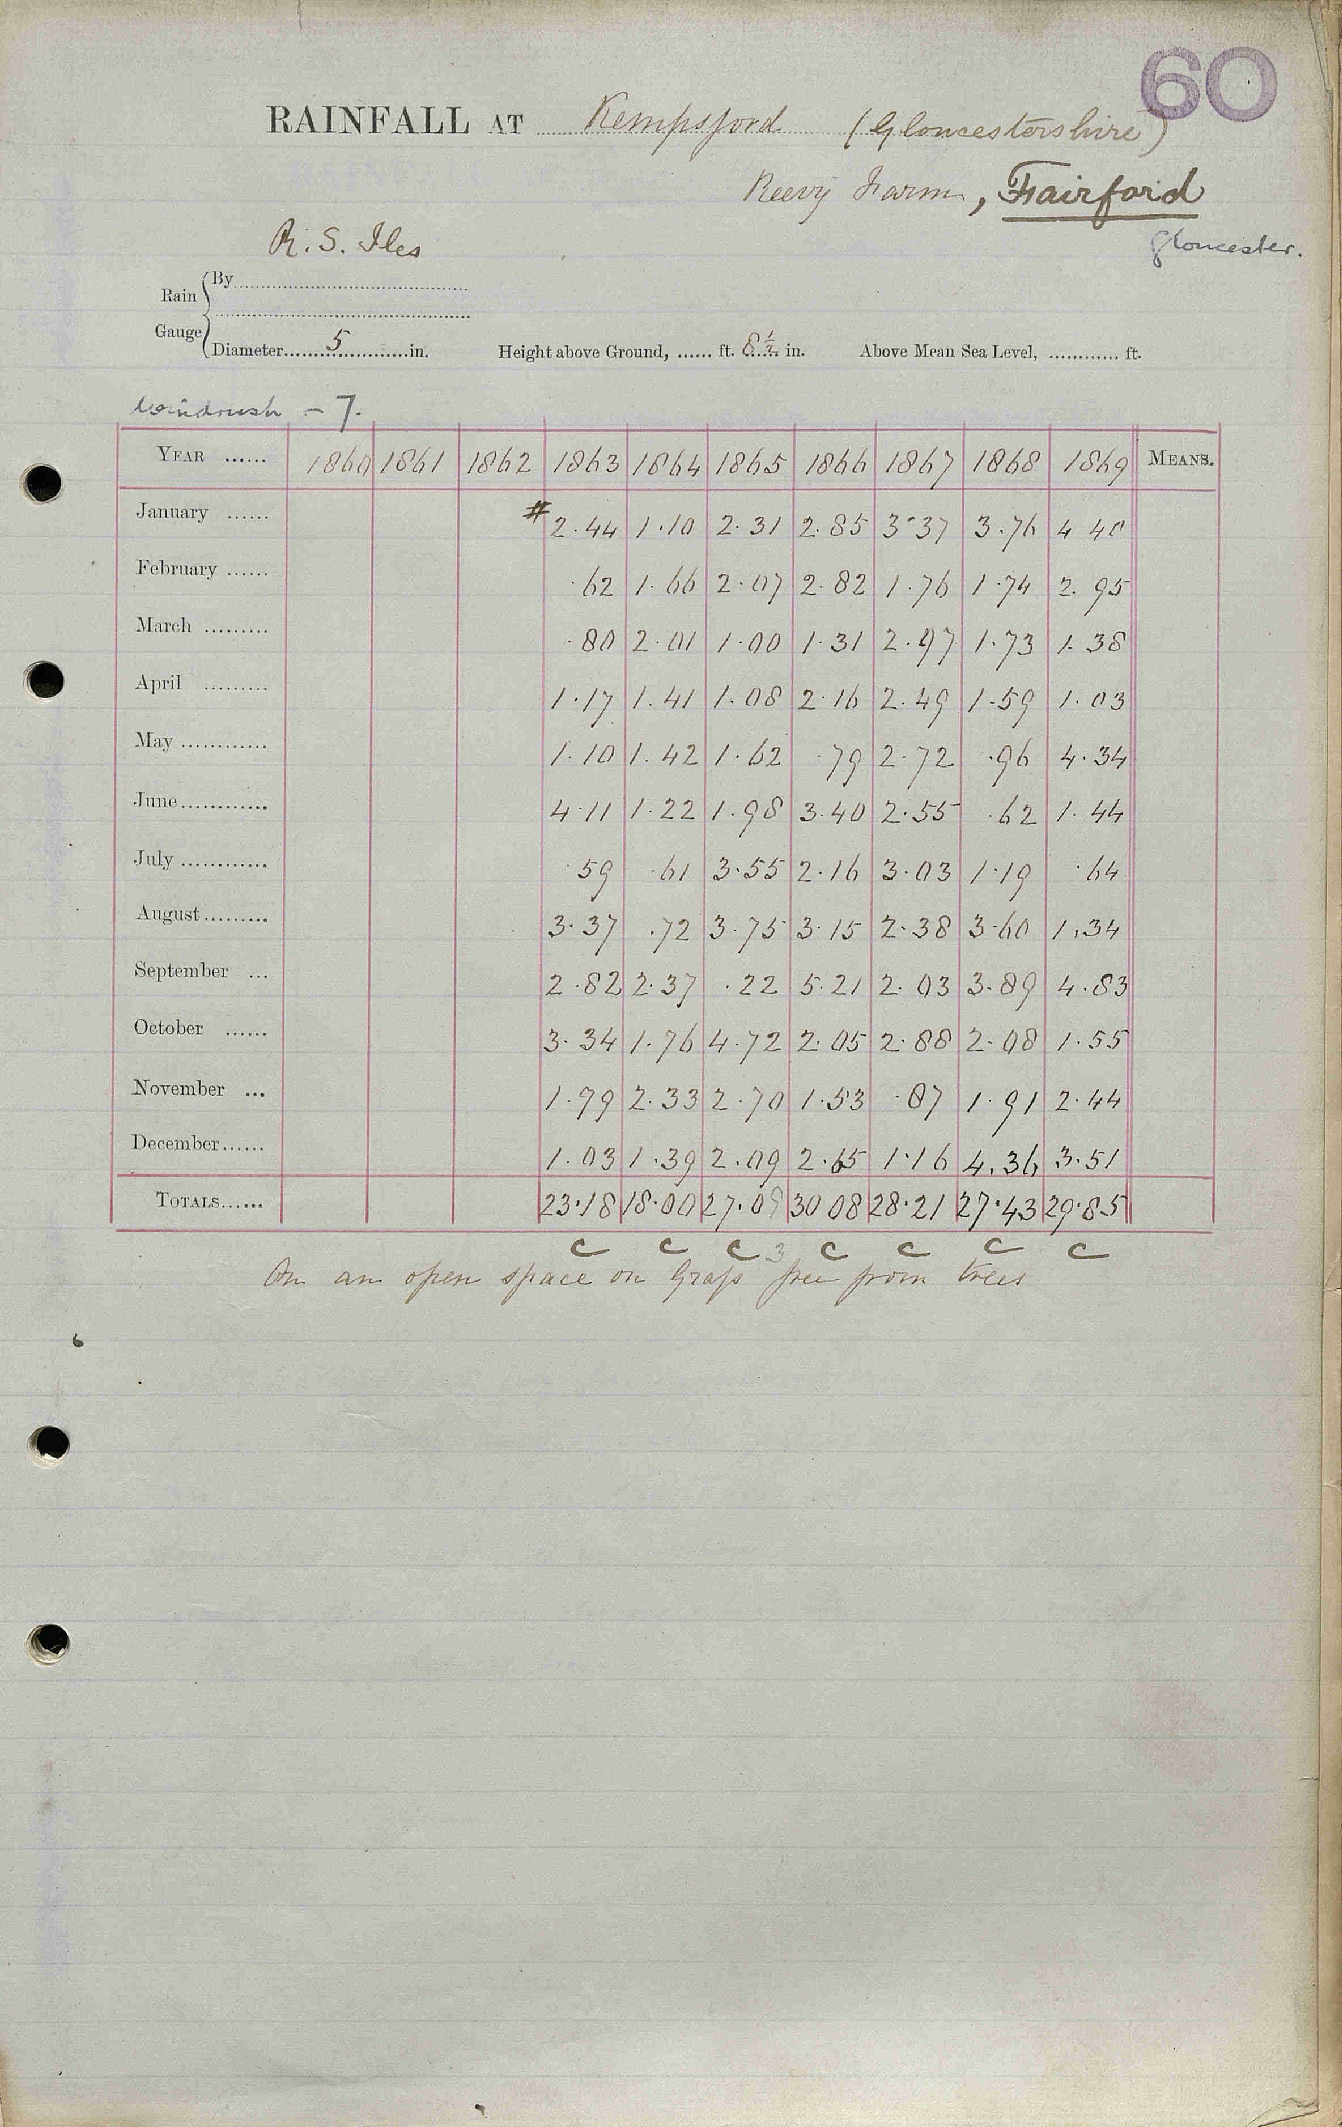 60
RAINFALL AT Kempsford (Gloucestershire)
Reevy Farm, Fairford
Gloucester.
R. S. Iles
Rain Gauge
By
Diameter 5 in. Height above Ground, ...... ft. 8½ in. Above Mean Sea Level, ............ ft.
Windrush – 7.
YEAR ...... 1860 1861 1862 1863 1864 1865 1866 1867 1868 1869 MEANS.
January ...... # 2.44 1.10 2.31 2.85 3.37 3.76 4 40
February ...... .62 1.66 2.07 2.82 1.76 1.74 2.95
March ......... .80 2.01 1.00 1.31 2.97 1.73 1.38
April ......... 1.17 1.41 1.08 2.16 2.49 1.59 1.03
May ............ 1.10 1.42 1.62 .79 2.72 .96 4.34
June ............ 4.11 1.22 1.98 3.40 2.55 .62 1.44
July ............ .59 .61 3.55 2.16 3.03 1.19 .64
August ......... 3.37 .72 3.75 3.15 2.38 3.60 1.34
September ... 2.82 2.37 .22 5.21 2.03 3.89 4.83
October ...... 3.34 1.76 4.72 2.05 2.88 2.08 1.55
November ... 1.79 2.33 2.70 1.53 .87 1.91 2.44
December ...... 1.03 1.39 2.09 2.65 1.16 4.36 3.51
TOTALS ...... 23.18 18.00 27.09 30 08 28.21 27.43 29.85
C C C 3 C C C C
On an open space on Grass free from trees